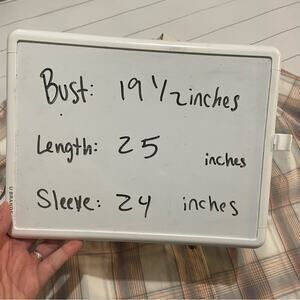 Bust: 19 1/2 inches
Length: 25 inches
Sleeve: 24 inches
U BRANDS